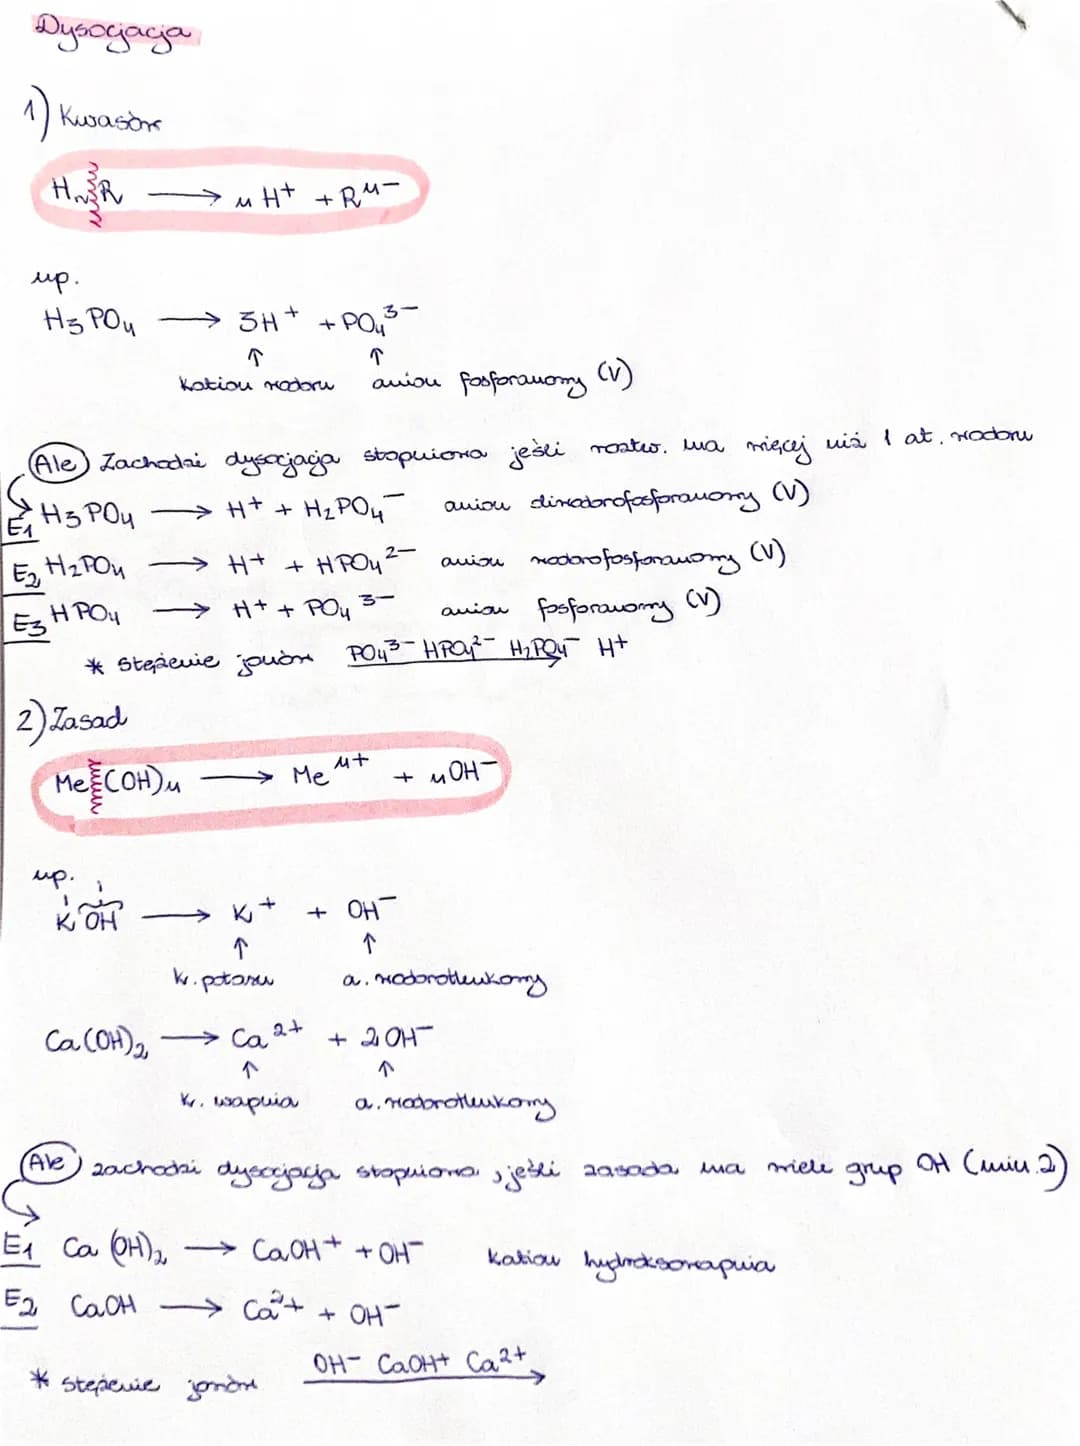 Dysocjacja
1) Kwasów
HnR → n H+ + Rn-
np.
H3PO4 → 3H+ + PO43-
↑ ↑
kation wodoru anion fosforanowy (V)
Ale Zachodzi dysocjacja stopniowa jeśli roztw. ma więcej niż 1 at. wodoru
E1 H3PO4 → H+ + H2PO4- anion diwodorofosforanowy (V)
E2 H2PO4 → H+ + HPO42- anion wodorofosforanowy (V)
E3 HPO4 → H+ + PO43- anion fosforanowy (V)
* Stężenie jonów PO43- HPO42- H2PO4- H+
2) Zasad
Me(OH)n → Men+ + nOH-
np.
I I
KOH → K+ + OH-
↑ ↑
k. potasu a. wodorotlenkowy
Ca(OH)2 → Ca2+ + 2OH-
↑ ↑
k. wapnia a. wodorotlenkowy
Ale zachodzi dysocjacja stopniowa, jeśli zasada ma wiele grup OH (min. 2)
E1 Ca(OH)2 → CaOH+ + OH- kation hydroksowapnia
E2 CaOH → Ca2+ + OH-
* stężenie jonów OH- CaOH+ Ca2+